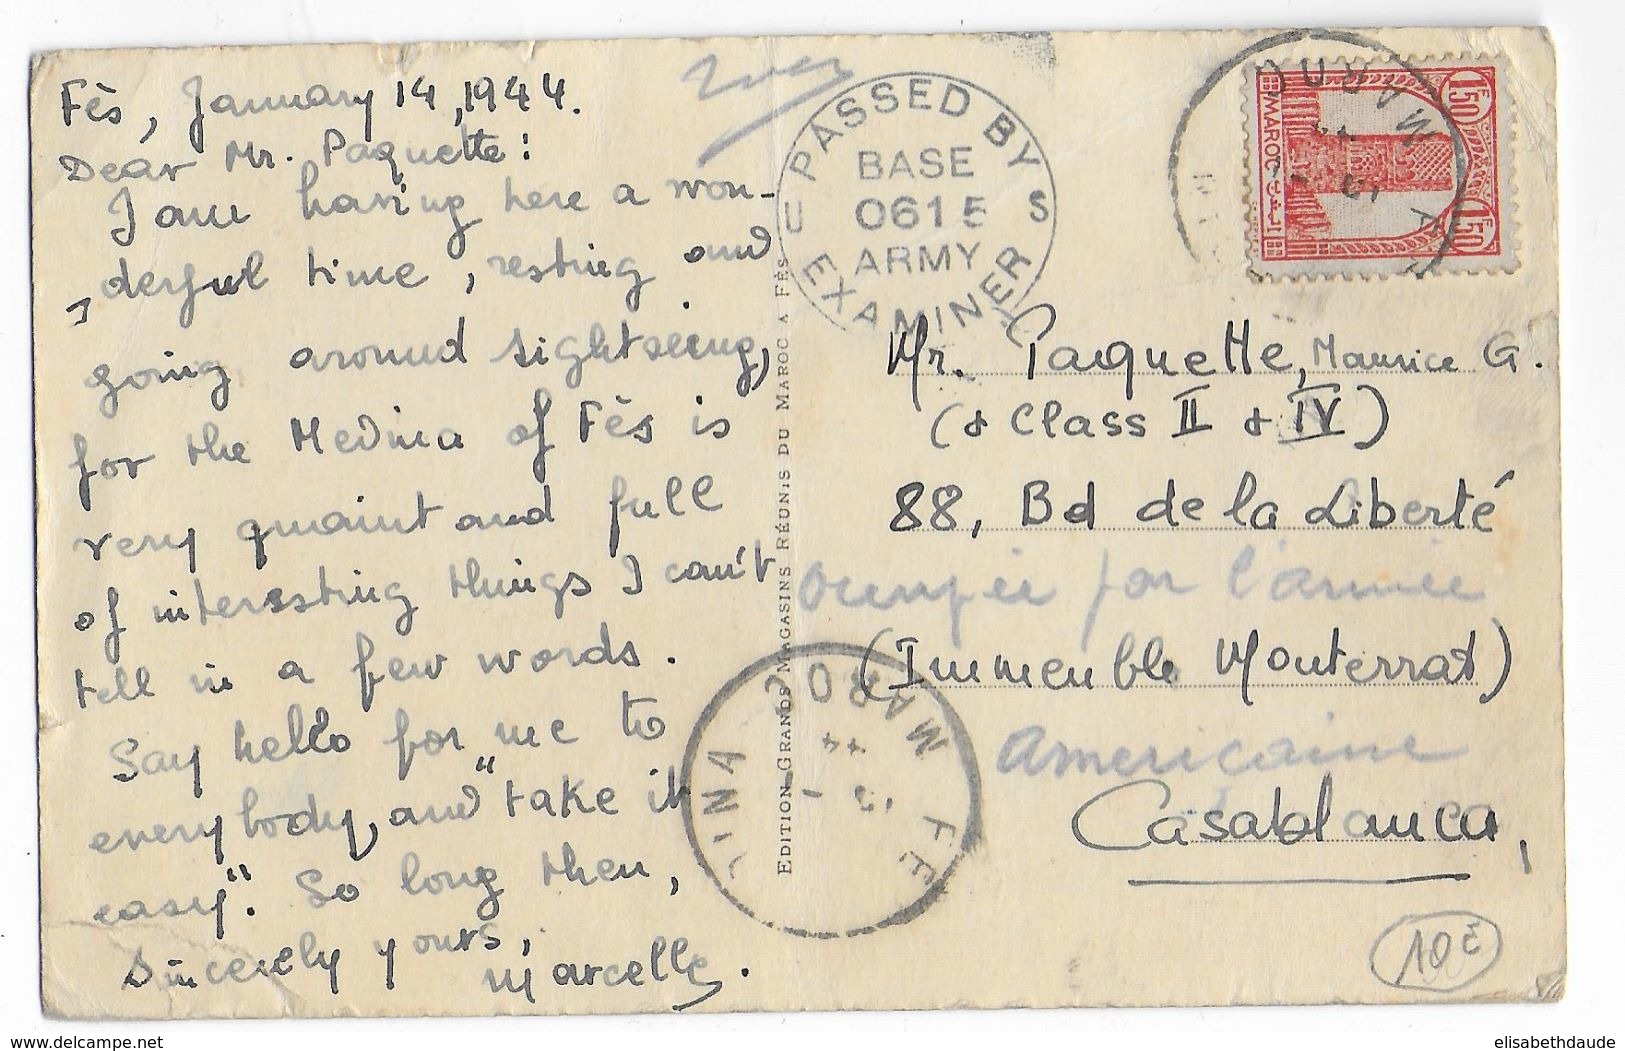 Fès, January 14, 1944.
Dear Mr. Paquette:
I am having here a won-
derful time, resting and
going around sightseeing,
for the Medina of Fès is
very quaint and full
of interesting things I can't
tell in a few words.
Say hello for me to
everybody, and "take it
easy". So long then,
Sincerely yours,
Marcelle.
EDITION GRANDS MAGASINS RÉUNIS DU MAROC A FÈS
PASSED BY
BASE
U 0615 S
ARMY
EXAMINER
MAROC
1F50 1F50
MAROC
Mr. Paquette, Maurice G.
(& Class II & IV)
88, Bd de la Liberté
occupée par l'armée
(Immeuble Monterrat)
américaine
Casablanca,
MEDINA
MAROC
FE
10€
elisabethdaude